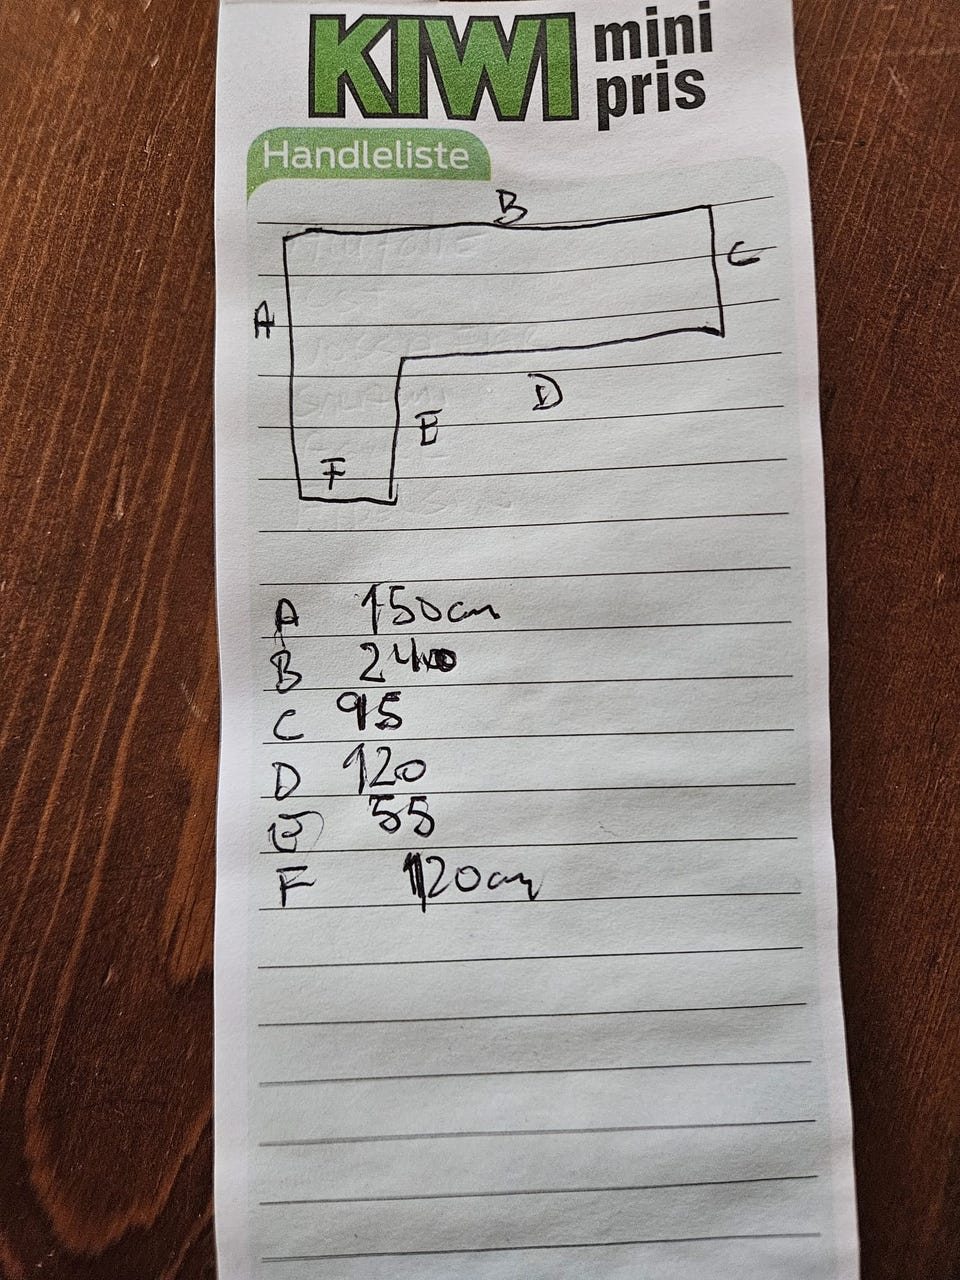 KIWI mini pris
Handleliste
B
C
A
D
E
F
A 150cm
B 240
C 95
D 120
E 55
F 120cm